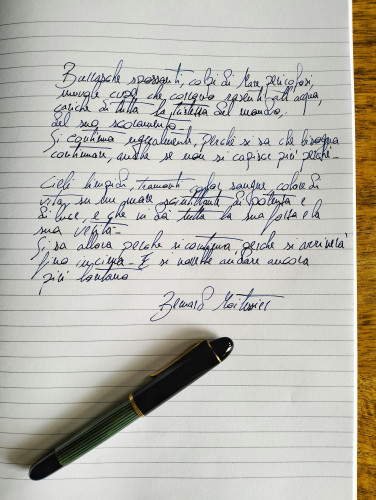 Burrasche spossanti, colpi di mare pericolosi,
nuvole cupe che corrono rasenti all'acqua,
cariche di tutta la tristezza del mondo,
del suo scoramento.
Si continua ugualmente, perché si sa che bisogna
continuare, anche se non si capisce più perché.
Cieli limpidi, tramonti color sangue, colore di
vita, su un mare scintillante di potenza e
di luce, e che mi dà tutta la sua forza e la
sua verità.
Si sa allora perché si continua, perché si arriverà
fino in cima. E si vorrebbe andare ancora
più lontano.
Bernard Moitessier